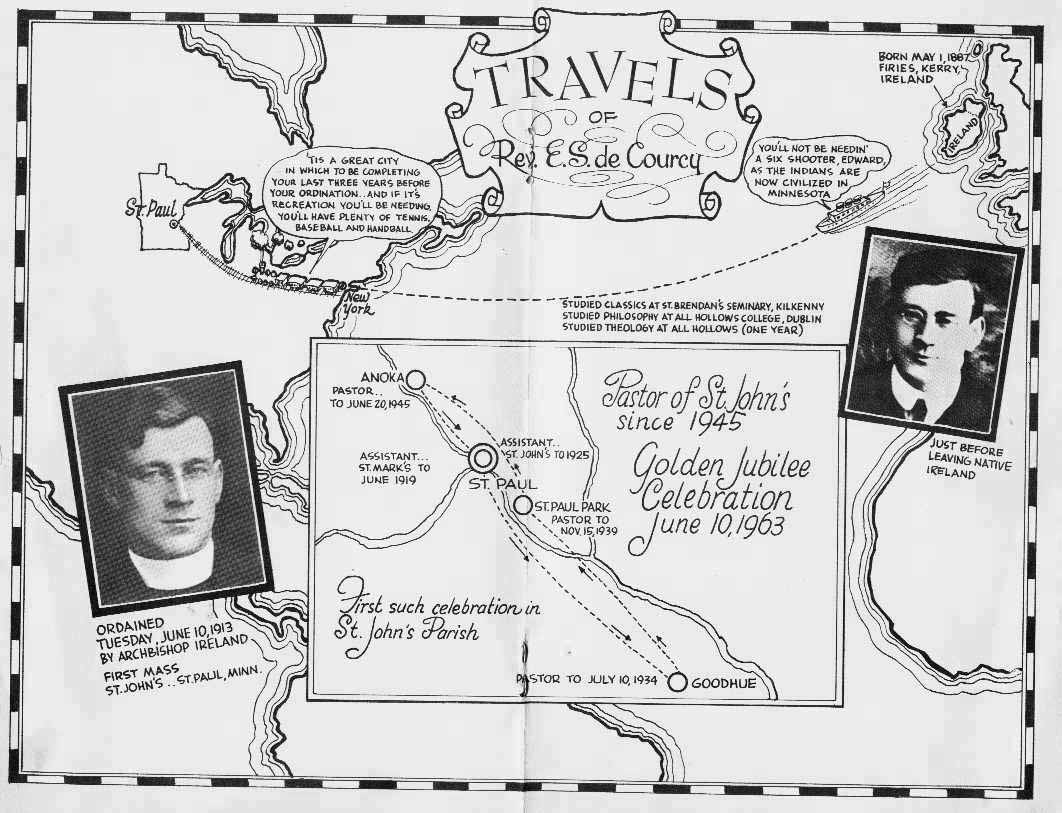 TRAVELS
OF
Rev. E.S. de Courcy
BORN MAY 1, 1887
FIRIES, KERRY,
IRELAND
IRELAND
YOU'LL NOT BE NEEDIN'
A SIX SHOOTER, EDWARD,
AS THE INDIANS ARE
NOW CIVILIZED IN
MINNESOTA
'TIS A GREAT CITY
IN WHICH TO BE COMPLETING
YOUR LAST THREE YEARS BEFORE
YOUR ORDINATION. AND IF IT'S
RECREATION YOU'LL BE NEEDING,
YOU'LL HAVE PLENTY OF TENNIS,
BASEBALL AND HANDBALL.
St. Paul
New
York
STUDIED CLASSICS AT ST. BRENDAN'S SEMINARY, KILKENNY
STUDIED PHILOSOPHY AT ALL HOLLOWS COLLEGE, DUBLIN
STUDIED THEOLOGY AT ALL HOLLOWS (ONE YEAR)
JUST BEFORE
LEAVING NATIVE
IRELAND
ANOKA
PASTOR..
TO JUNE 20, 1945
ASSISTANT...
ST. MARK'S TO
JUNE 1919
ASSISTANT..
ST. JOHN'S TO 1925
ST. PAUL
ST. PAUL PARK
PASTOR TO
NOV. 15, 1939
Pastor of St. John's
since 1945
Golden Jubilee
Celebration
June 10, 1963
First such celebration in
St. John's Parish
PASTOR TO JULY 10, 1934
GOODHUE
ORDAINED
TUESDAY, JUNE 10, 1913
BY ARCHBISHOP IRELAND
FIRST MASS
ST. JOHN'S .. ST. PAUL, MINN.